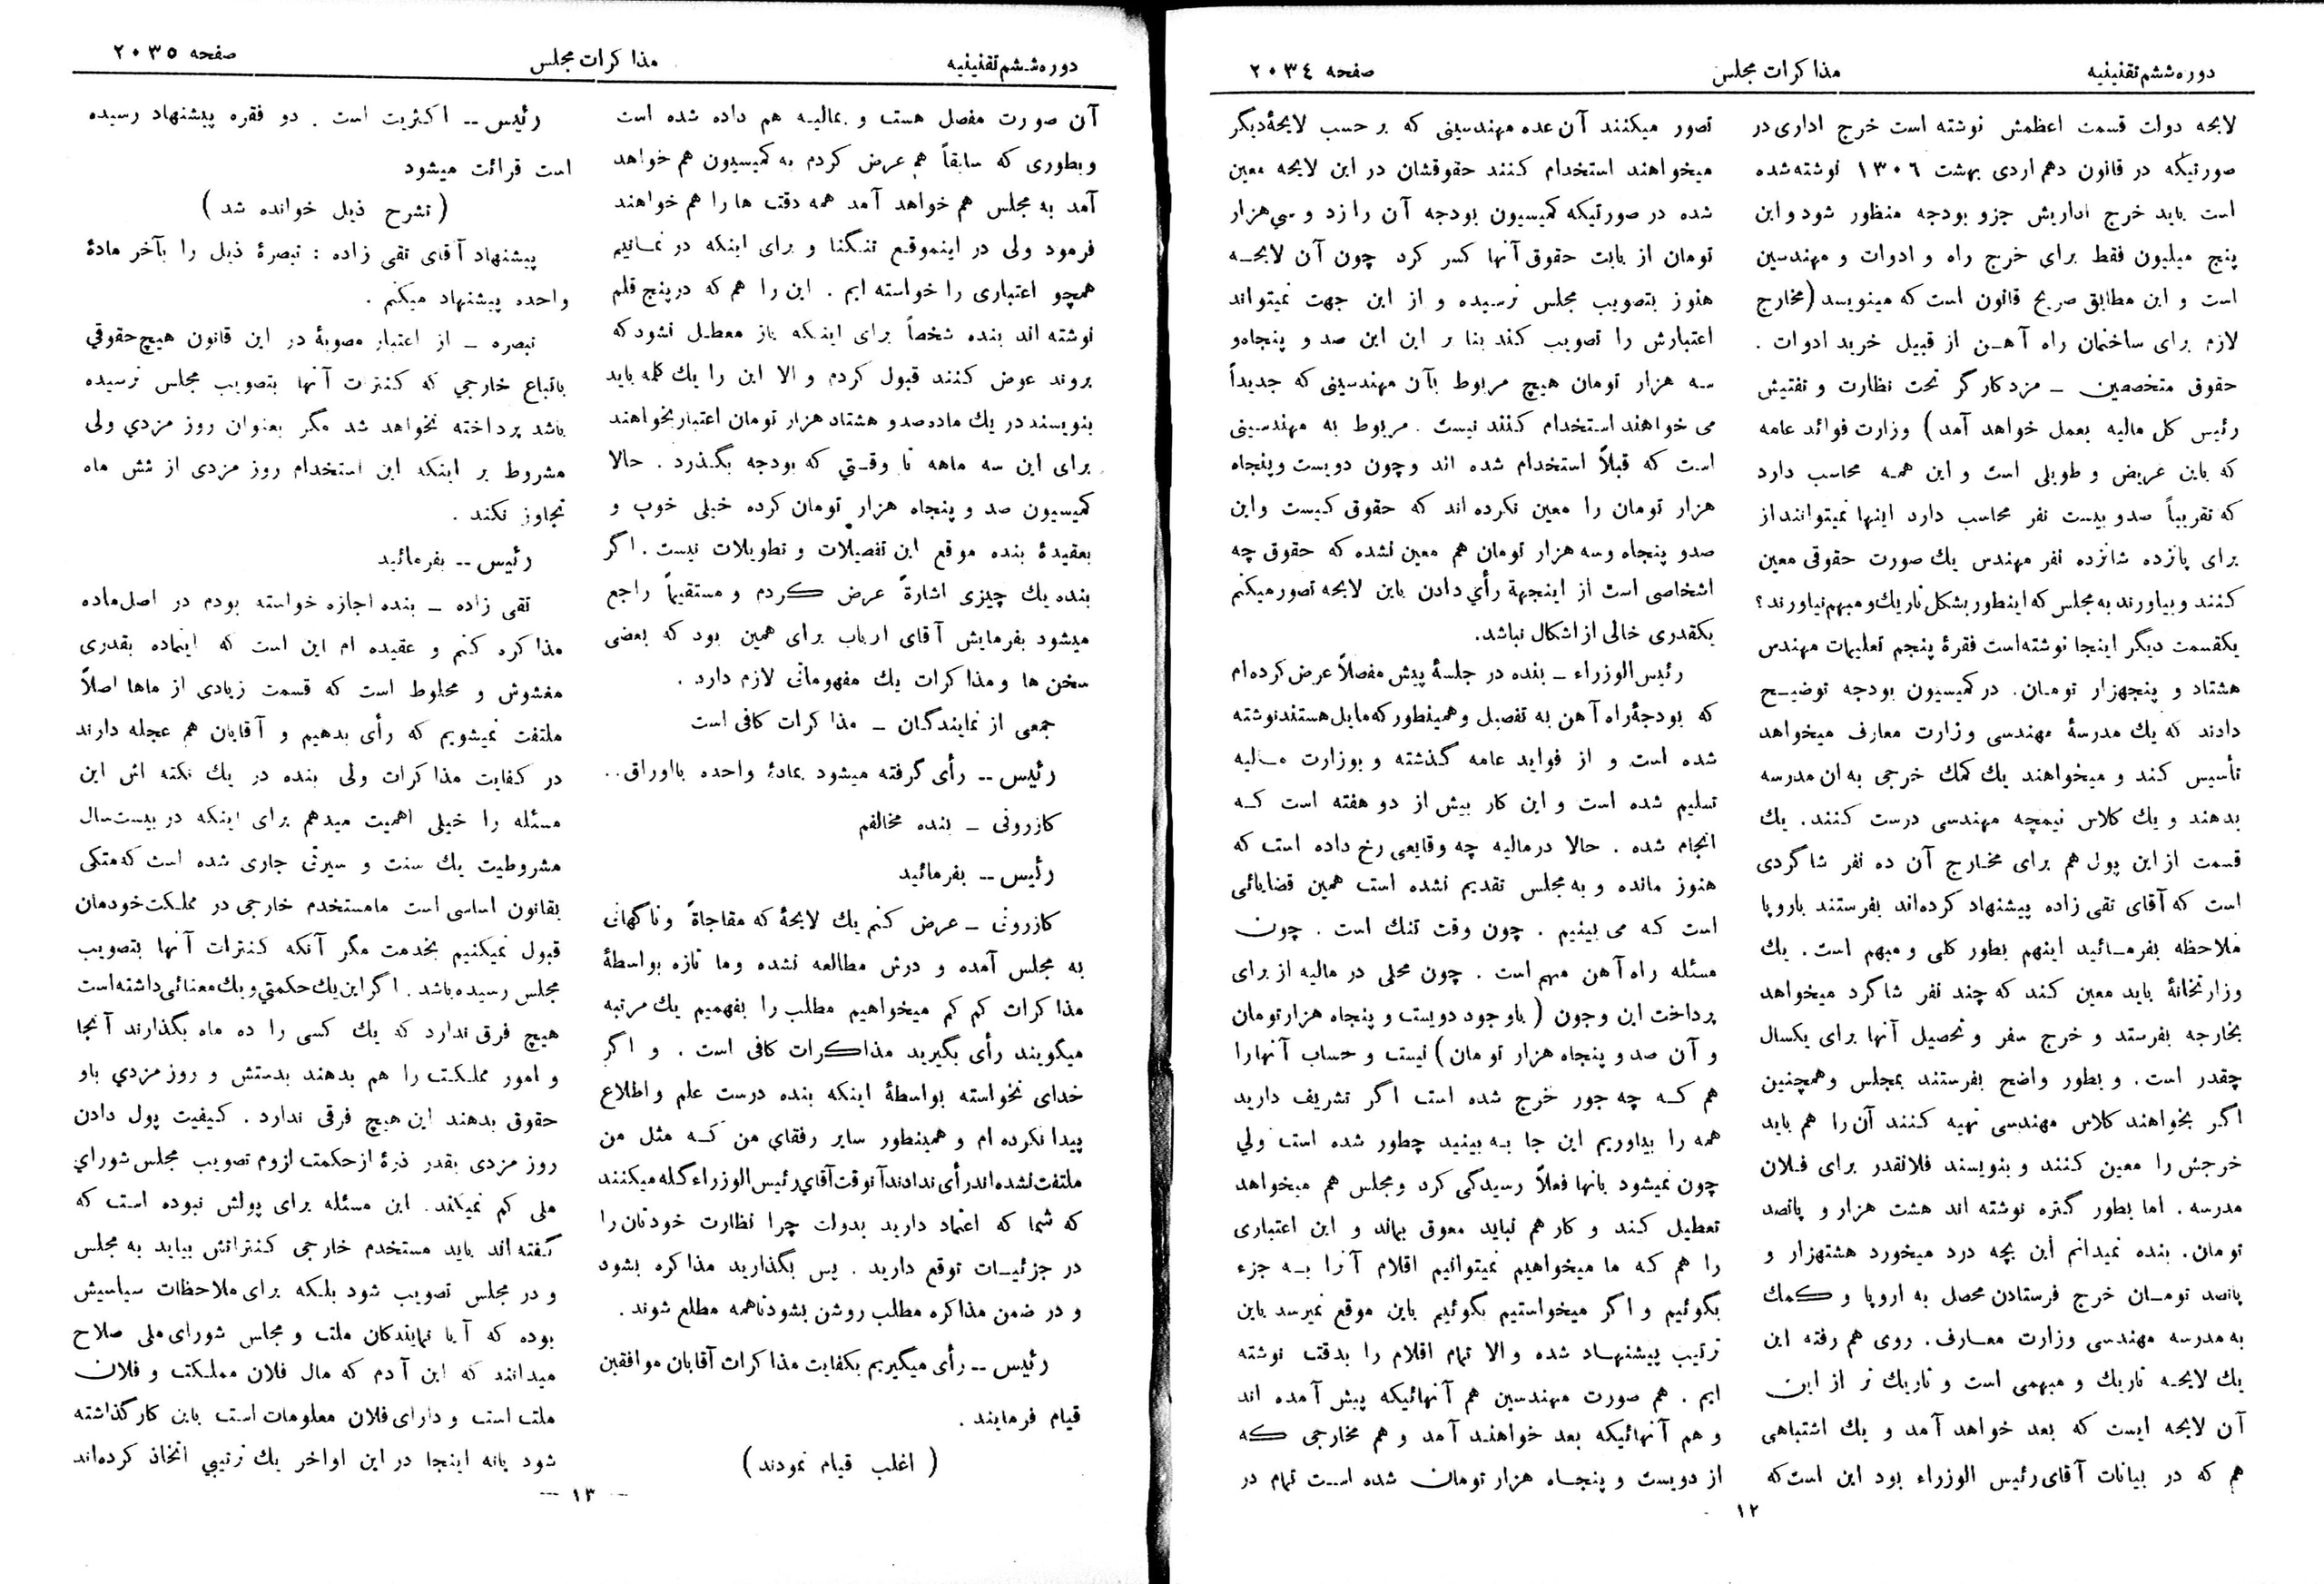 دوره ششم تقنینیه
مذاکرات مجلس
صفحه ۲۰۳۴
لایحه دولت قسمت اعظمش نوشته است خرج اداری در
صورتیکه در قانون دهم اردی بهشت ۱۳۰۶ نوشته شده
است باید خرج اداریش جزو بودجه منظور شود و این
پنج میلیون فقط برای خرج راه و ادوات و مهندسین
است و این مطابق صریح قانون است که مینویسد (مخارج
لازم برای ساختمان راه آهن از قبیل خرید ادوات .
حقوق متخصصین ــ مزد کارگر تحت نظارت و تفتیش
رئیس کل مالیه بعمل خواهد آمد) وزارت فوائد عامه
که باین عریض و طویلی است و این همه محاسب دارد
که تقریباً صدو بیست نفر محاسب دارد اینها نمیتوانند از
برای پانزده شانزده نفر مهندس یك صورت حقوقی معین
کنند و بیاورند به مجلس که اینطور بشکل تاریك و مبهم نیاورند؟
یکقسمت دیگر اینجا نوشته است فقرۀ پنجم تعلیمات مهندس
هشتاد و پنجهزار تومان. در کمیسیون بودجه توضیح
دادند که یك مدرسۀ مهندسی وزارت معارف میخواهد
تأسیس کند و میخواهند یك کمك خرجی به ان مدرسه
بدهند و یك کلاس نیمچه مهندسی درست کنند. یك
قسمت از این پول هم برای مخارج آن ده نفر شاگردی
است که آقای تقی زاده پیشنهاد کرده‌اند بفرستند باروپا
ملاحظه بفرمائید اینهم بطور کلی و مبهم است. یك
وزارتخانۀ باید معین کند که چند نفر شاگرد میخواهد
بخارجه بفرستد و خرج سفر و تحصیل آنها برای یکسال
چقدر است. و بطور واضح بفرستند بمجلس و همچنین
اگر بخواهند کلاس مهندسی تهیه کنند آن را هم باید
خرجش را معین کنند و بنویسند فلانقدر برای فلان
مدرسه . اما بطور گتره نوشته اند هشت هزار و پانصد
تومان. بنده نمیدانم این بچه درد میخورد هشتهزار و
پانصد تومان خرج فرستادن محصل به اروپا و کمك
به مدرسه مهندسی وزارت معارف. روی هم رفته این
یك لایحه تاریك و مبهمی است و تاریك تر از این
آن لایحه ایست که بعد خواهد آمد و یك اشتباهی
هم که در بیانات آقای رئیس الوزراء بود این است که
تصور میکنند آن عده مهندسینی که بر حسب لایحۀ دیگر
میخواهند استخدام کنند حقوقشان در این لایحه معین
شده در صورتیکه کمیسیون بودجه آن را زد و سی هزار
تومان از بابت حقوق آنها کسر کرد چون آن لایحه
هنوز بتصویب مجلس نرسیده و از این جهت نمیتواند
اعتبارش را تصویب کند بنا بر این این صد و پنجاه و
سه هزار تومان هیچ مربوط بآن مهندسینی که جدیداً
می خواهند استخدام کنند نیست . مربوط به مهندسینی
است که قبلاً استخدام شده اند و چون دویست و پنجاه
هزار تومان را معین نکرده اند که حقوق کیست و این
صدو پنجاه وسه هزار تومان هم معین نشده که حقوق چه
اشخاصی است از اینجهة رأی دادن باین لایحه تصور میکنم
یکقدری خالی از اشکال نباشد.
رئیس الوزراء ــ بنده در جلسۀ پیش مفصلاً عرض کرده ام
که بودجۀ راه آهن به تفصیل و همینطور که مایل هستند نوشته
شده است و از فواید عامه گذشته و بوزارت مالیه
تسلیم شده است و این کار بیش از دو هفته است که
انجام شده . حالا در مالیه چه وقایعی رخ داده است که
هنوز مانده و به مجلس تقدیم نشده است همین قضایائی
است که می بینیم . چون وقت تنك است . چون
مسئله راه آهن مهم است . چون محلی در مالیه از برای
پرداخت این وجون (باوجود دویست و پنجاه هزار تومان
و آن صد و پنجاه هزار تومان) نیست و حساب آنها را
هم که چه جور خرج شده است اگر تشریف دارید
همه را بیاوریم این جا به بینید چطور شده است ولی
چون نمیشود بانها فعلاً رسیدگی کرد و مجلس هم میخواهد
تعطیل کند و کار هم نباید معوق بماند و این اعتباری
را هم که ما میخواهیم نمیتوانیم اقلام آنرا به جزء
بگوئیم و اگر میخواستیم بگوئیم باین موقع نمیرسد باین
ترتیب پیشنهاد شده والا تمام اقلام را بدقت نوشته
ایم . هم صورت مهندسین هم آنهائیکه پیش آمده اند
و هم آنهائیکه بعد خواهند آمد و هم مخارجی که
از دویست و پنجاه هزار تومان شده است تمام در
۱۲
دوره ششم تقنینیه
مذاکرات مجلس
صفحه ۲۰۳۵
آن صورت مفصل هست و بمالیه هم داده شده است
و بطوری که سابقاً هم عرض کردم به کمیسیون هم خواهد
آمد به مجلس هم خواهد آمد همه دقت ها را هم خواهند
فرمود ولی در اینموقع تنگنا و برای اینکه در نمانیم
همچو اعتباری را خواسته ایم . این را هم که در پنج قلم
نوشته اند بنده شخصاً برای اینکه باز معطل نشود که
بروند عوض کنند قبول کردم و الا این را یك کلمه باید
بنویسند در یك ماده صد و هشتاد هزار تومان اعتبار بخواهند
برای این سه ماهه تا وقتی که بودجه بگذرد . حالا
کمیسیون صد و پنجاه هزار تومان کرده خیلی خوب و
بعقیدۀ بنده موقع این تفصیلات و تطویلات نیست . اگر
بنده یك چیزی اشارةً عرض کردم و مستقیماً راجع
میشود بفرمایش آقای ارباب برای همین بود که بعضی
سخن ها و مذاکرات یك مفهوماتی لازم دارد .
جمعی از نمایندگان ــ مذاکرات کافی است
رئیس ــ رأی گرفته میشود بمادۀ واحده بااوراق..
کازرونی ــ بنده مخالفم
رئیس ــ بفرمائید
کازرونی ــ عرض کنم یك لایحۀ که مفاجاةً و ناگهانی
به مجلس آمده و درش مطالعه نشده وما تازه بواسطۀ
مذاکرات کم کم میخواهیم مطلب را بفهمیم یك مرتبه
میگویند رأی بگیرید مذاکرات کافی است . و اگر
خدای نخواسته بواسطۀ اینکه بنده درست علم و اطلاع
پیدا نکرده ام و همینطور سایر رفقای من که مثل من
ملتفت نشده اند رأی ندادند آنوقت آقای رئیس الوزراء گله میکنند
که شما که اعتماد دارید بدولت چرا نظارت خودتان را
در جزئیات توقع دارید . پس بگذارید مذاکره بشود
و در ضمن مذاکره مطلب روشن بشود تاهمه مطلع شوند.
رئیس ــ رأی میگیریم بکفایت مذاکرات آقایان موافقین
قیام فرمایند .
(اغلب قیام نمودند)
رئیس ــ اکثریت است . دو فقره پیشنهاد رسیده
است قرائت میشود
(بشرح ذیل خوانده شد)
پیشنهاد آقای تقی زاده : تبصرۀ ذیل را بآخر مادۀ
واحده پیشنهاد میکنم .
تبصره ــ از اعتبار مصوبۀ در این قانون هیچ حقوقی
باتباع خارجی که کنترات آنها بتصویب مجلس نرسیده
باشد پرداخته نخواهد شد مگر بعنوان روز مزدی ولی
مشروط بر اینکه این استخدام روز مزدی از شش ماه
تجاوز نکند .
رئیس ــ بفرمائید
تقی زاده ــ بنده اجازه خواسته بودم در اصل ماده
مذاکره کنم و عقیده ام این است که اینماده بقدری
مغشوش و مخلوط است که قسمت زیادی از ماها اصلاً
ملتفت نمیشویم که رأی بدهیم و آقایان هم عجله دارند
در کفایت مذاکرات ولی بنده در یك نکته اش این
مسئله را خیلی اهمیت میدهم برای اینکه در بیست سال
مشروطیت یك سنت و سیرتی جاری شده است که متکی
بقانون اساسی است مامستخدم خارجی در مملکت خودمان
قبول نمیکنیم بخدمت مگر آنکه کنترات آنها بتصویب
مجلس رسیده باشد. اگر این یك حکمتی و یك معنائی داشته است
هیچ فرق ندارد که یك کسی را ده ماه بگذارند آنجا
و امور مملکت را هم بدهند بدستش و روز مزدی باو
حقوق بدهند این هیچ فرقی ندارد . کیفیت پول دادن
روز مزدی بقدر ذرۀ از حکمت لزوم تصویب مجلس شورای
ملی کم نمیکند. این مسئله برای پولش نبوده است که
گفته اند باید مستخدم خارجی کنتراتش بیاید به مجلس
و در مجلس تصویب شود بلکه برای ملاحظات سیاسیش
بوده که آیا نمایندکان ملت و مجلس شورای ملی صلاح
میدانند که این آدم که مال فلان مملکت و فلان
ملت است و دارای فلان معلومات است باین کار گذاشته
شود یانه اینجا در این اواخر یك ترتیبی اتخاذ کرده‌اند
ــ ۱۳ ــ